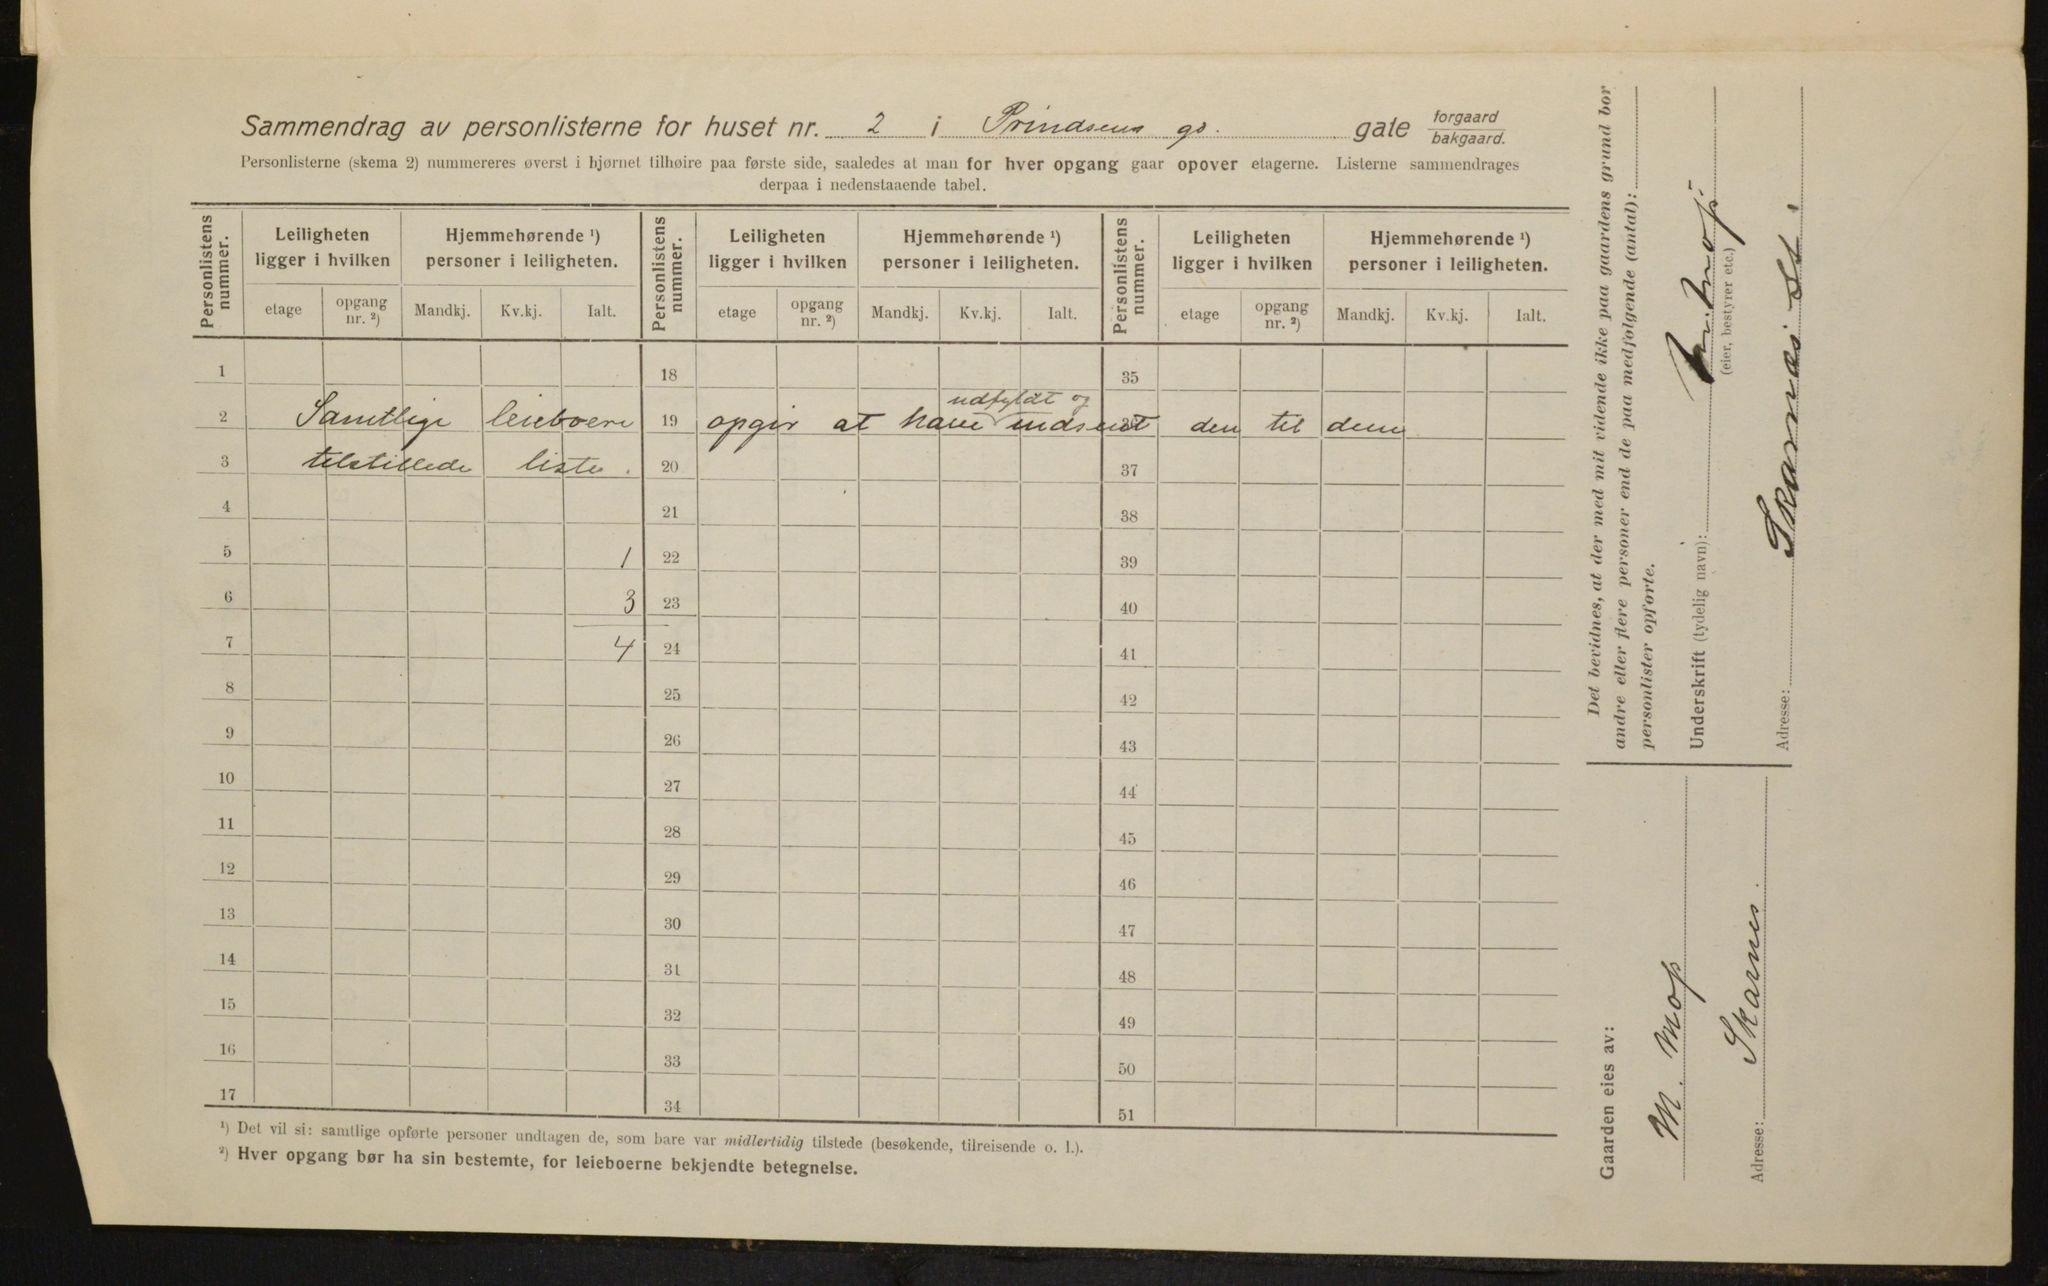 Sammendrag av personlisterne for huset nr. 2 i Prindsens gd. gate forgaard bakgaard.
Personlisterne (skema 2) nummereres øverst i hjørnet tilhøire paa første side, saaledes at man for hver opgang gaar opover etagerne. Listerne sammendrages
derpaa i nedenstaaende tabel.
Personlistens nummer. Leiligheten ligger i hvilken Hjemmehørende ¹) personer i leiligheten. Personlistens nummer. Leiligheten ligger i hvilken Hjemmehørende ¹) personer i leiligheten. Personlistens nummer. Leiligheten ligger i hvilken Hjemmehørende ¹) personer i leiligheten.
etage opgang nr. ²) Mandkj. Kv.kj. Ialt. etage opgang nr. ²) Mandkj. Kv.kj. Ialt. etage opgang nr. ²) Mandkj. Kv.kj. Ialt.
1 18 35
udfyldt og
2 Samtlige leieboere 19 opgir at have indsendt den til dem
3 telstillede liste. 20 37
4 21 38
5 1 22 39
6 3 23 40
7 4 24 41
8 25 42
9 26 43
10 27 44
11 28 45
12 29 46
13 30 47
14 31 48
15 32 49
16 33 50
17 34 51
¹) Det vil si: samtlige opførte personer undtagen de, som bare var midlertidig tilstede (besøkende, tilreisende o. l.).
²) Hver opgang bør ha sin bestemte, for leieboerne bekjendte betegnelse.
Det bevidnes, at der med mit vidende ikke paa gaardens grund bor
andre eller flere personer end de paa medfølgende (antal):
personlister opførte.
Underskrift (tydelig navn): M. Mop.
(eier, bestyrer etc.)
Adresse: Skarnæs St.
Gaarden eies av:
M. Mop
Adresse: Skarnes.